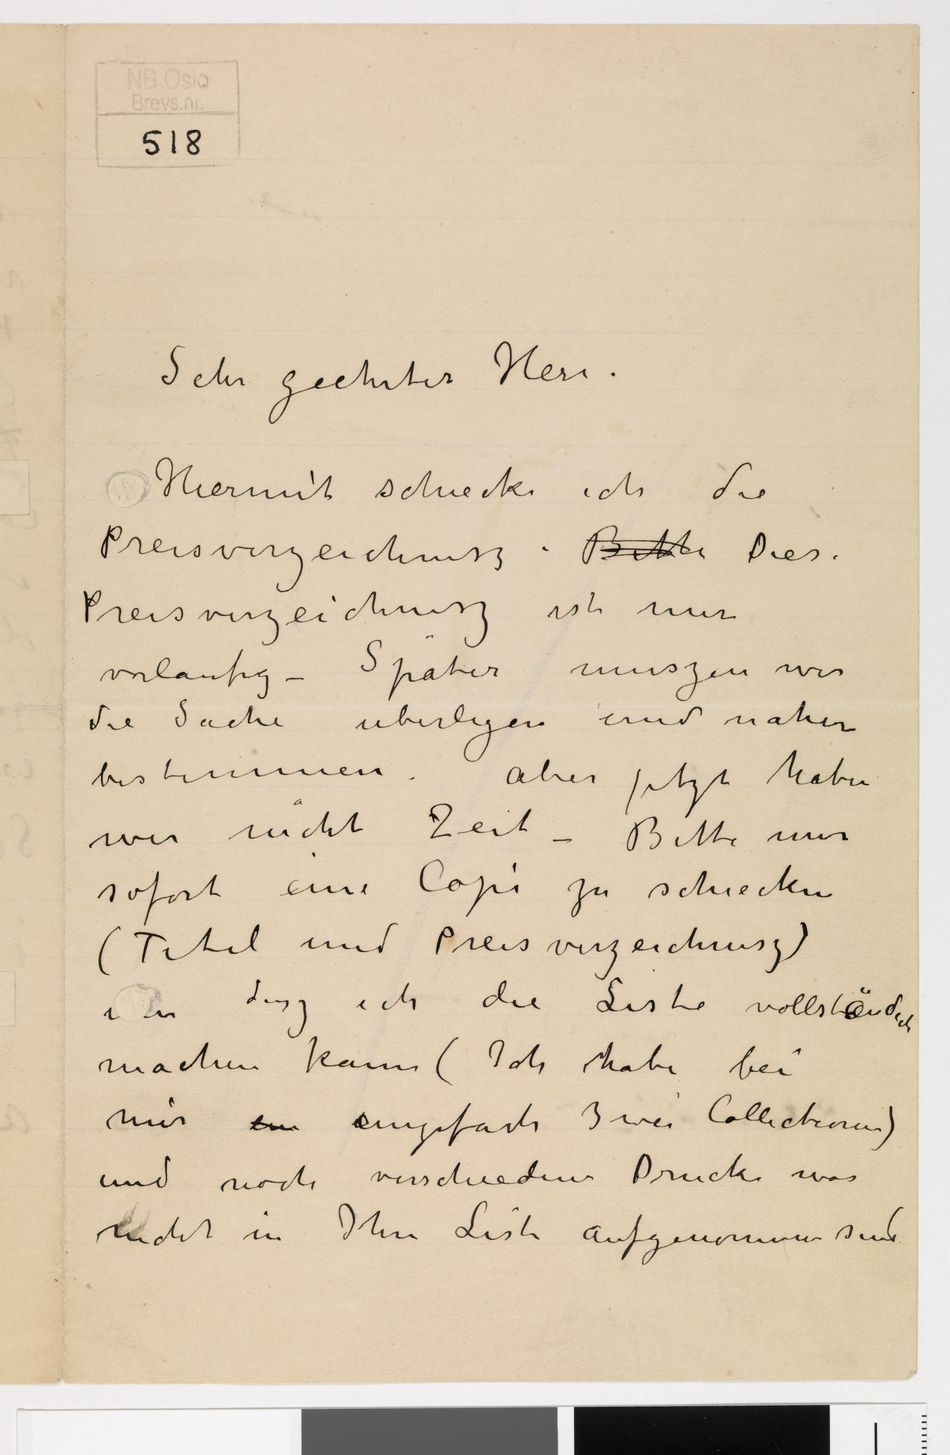 NB Oslo
Brevs.nr.
518
Sehr geehrter Herr.
Hiermit schicke ich die
Preisverzeichnisz. Bitte Dies.
Preisverzeichnisz ist nur
vorlaufig – Später muszen wir
die Sache uberlegen und naher
bestimmen. aber jetzt haben
wir nicht Zeit – Bitte mir
sofort eine Copi zu schicken
(Titel und Preisverzeichnisz)
dasz ich die Liste vollständich
machen kann (Ich habe bei
mir ein eingefach Zwei Collectionen)
und noch verschiedene Drucke was
nicht in Ihre Liste aufgenommen sind